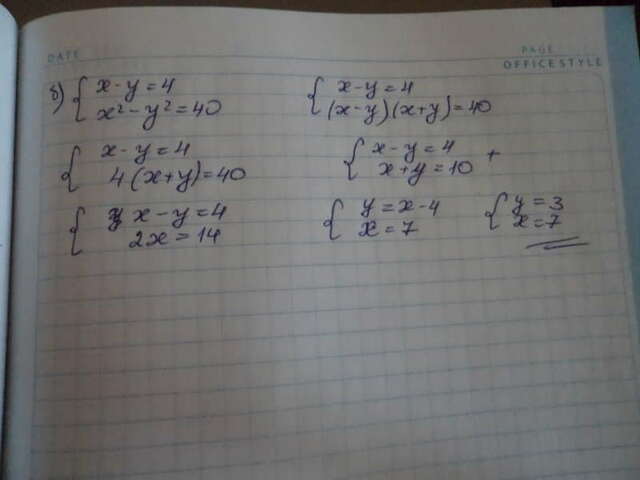 DATE
PAGE
OFFICE STYLE
б) { x - y = 4
x² - y² = 40
{ x - y = 4
(x - y)(x + y) = 40
{ x - y = 4
4(x + y) = 40
{ x - y = 4
x + y = 10 +
{ x - y = 4
2x = 14
{ y = x - 4
x = 7
{ y = 3
x = 7